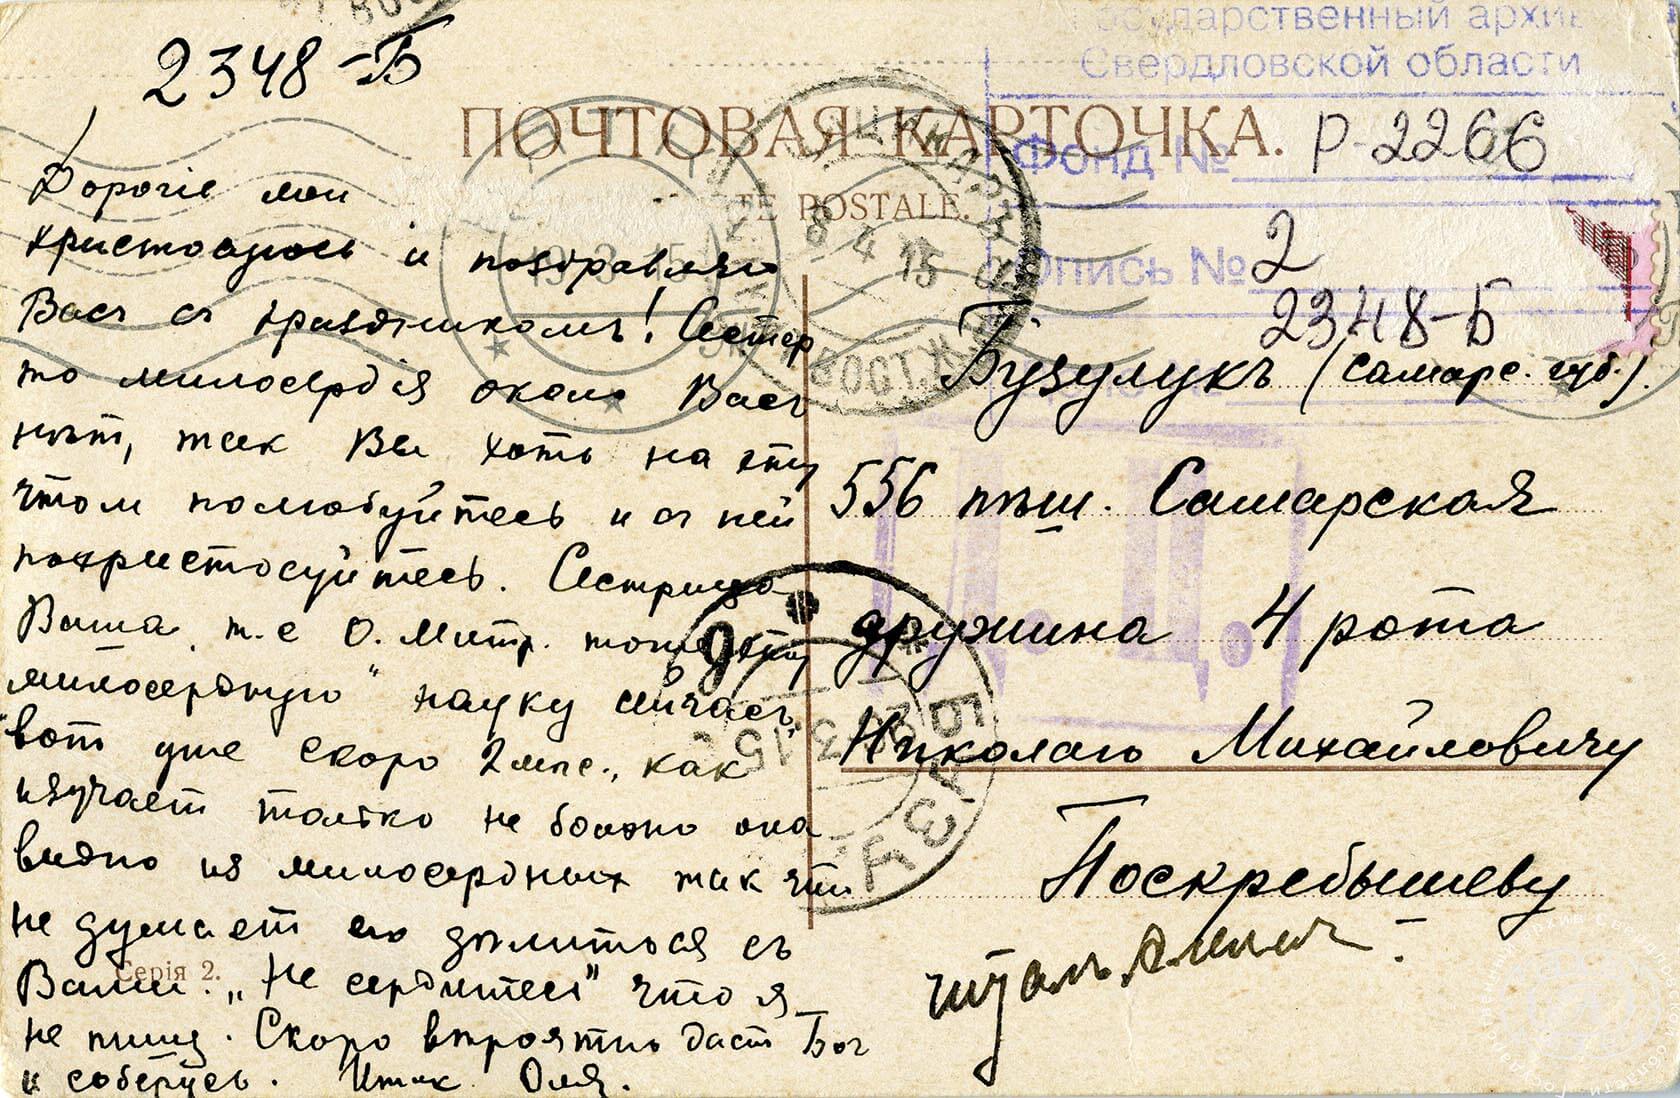 2348-Б
Государственный архив
Свердловской области
ПОЧТОВАЯ КАРТОЧКА.
TE POSTALE.
Фонд № Р-2266
Опись № 2
2348-Б
8 4 15
19 3 15
Дорогіе мои
христосуюсь и поздравляю
Васъ съ праздникомъ! Сестер
то милосердія около Васъ
нѣт, так Вы хоть на эту
что полюбуйтесь и съ ней
похристосуйтесь. Сестрица
Ваша т.е О. Митр. тоже эту
„милосердную" науку
вот уже скоро 2 мѣс., как
изучает только не больно она
видно из милосердных так что
не думает ею дѣлиться съ
Вами. „Не сердитесь" что я
не пишу. Скоро вѣроятно даст Бог
и соберусь. Итак Оля.
Серія 2.
Бузулукъ (Самарс. губ.).
556 пѣш. Самарская
дружина 4 рота
Николаю Михайловичу
Поскребышеву
Д.Ц.
БУЗУЛ